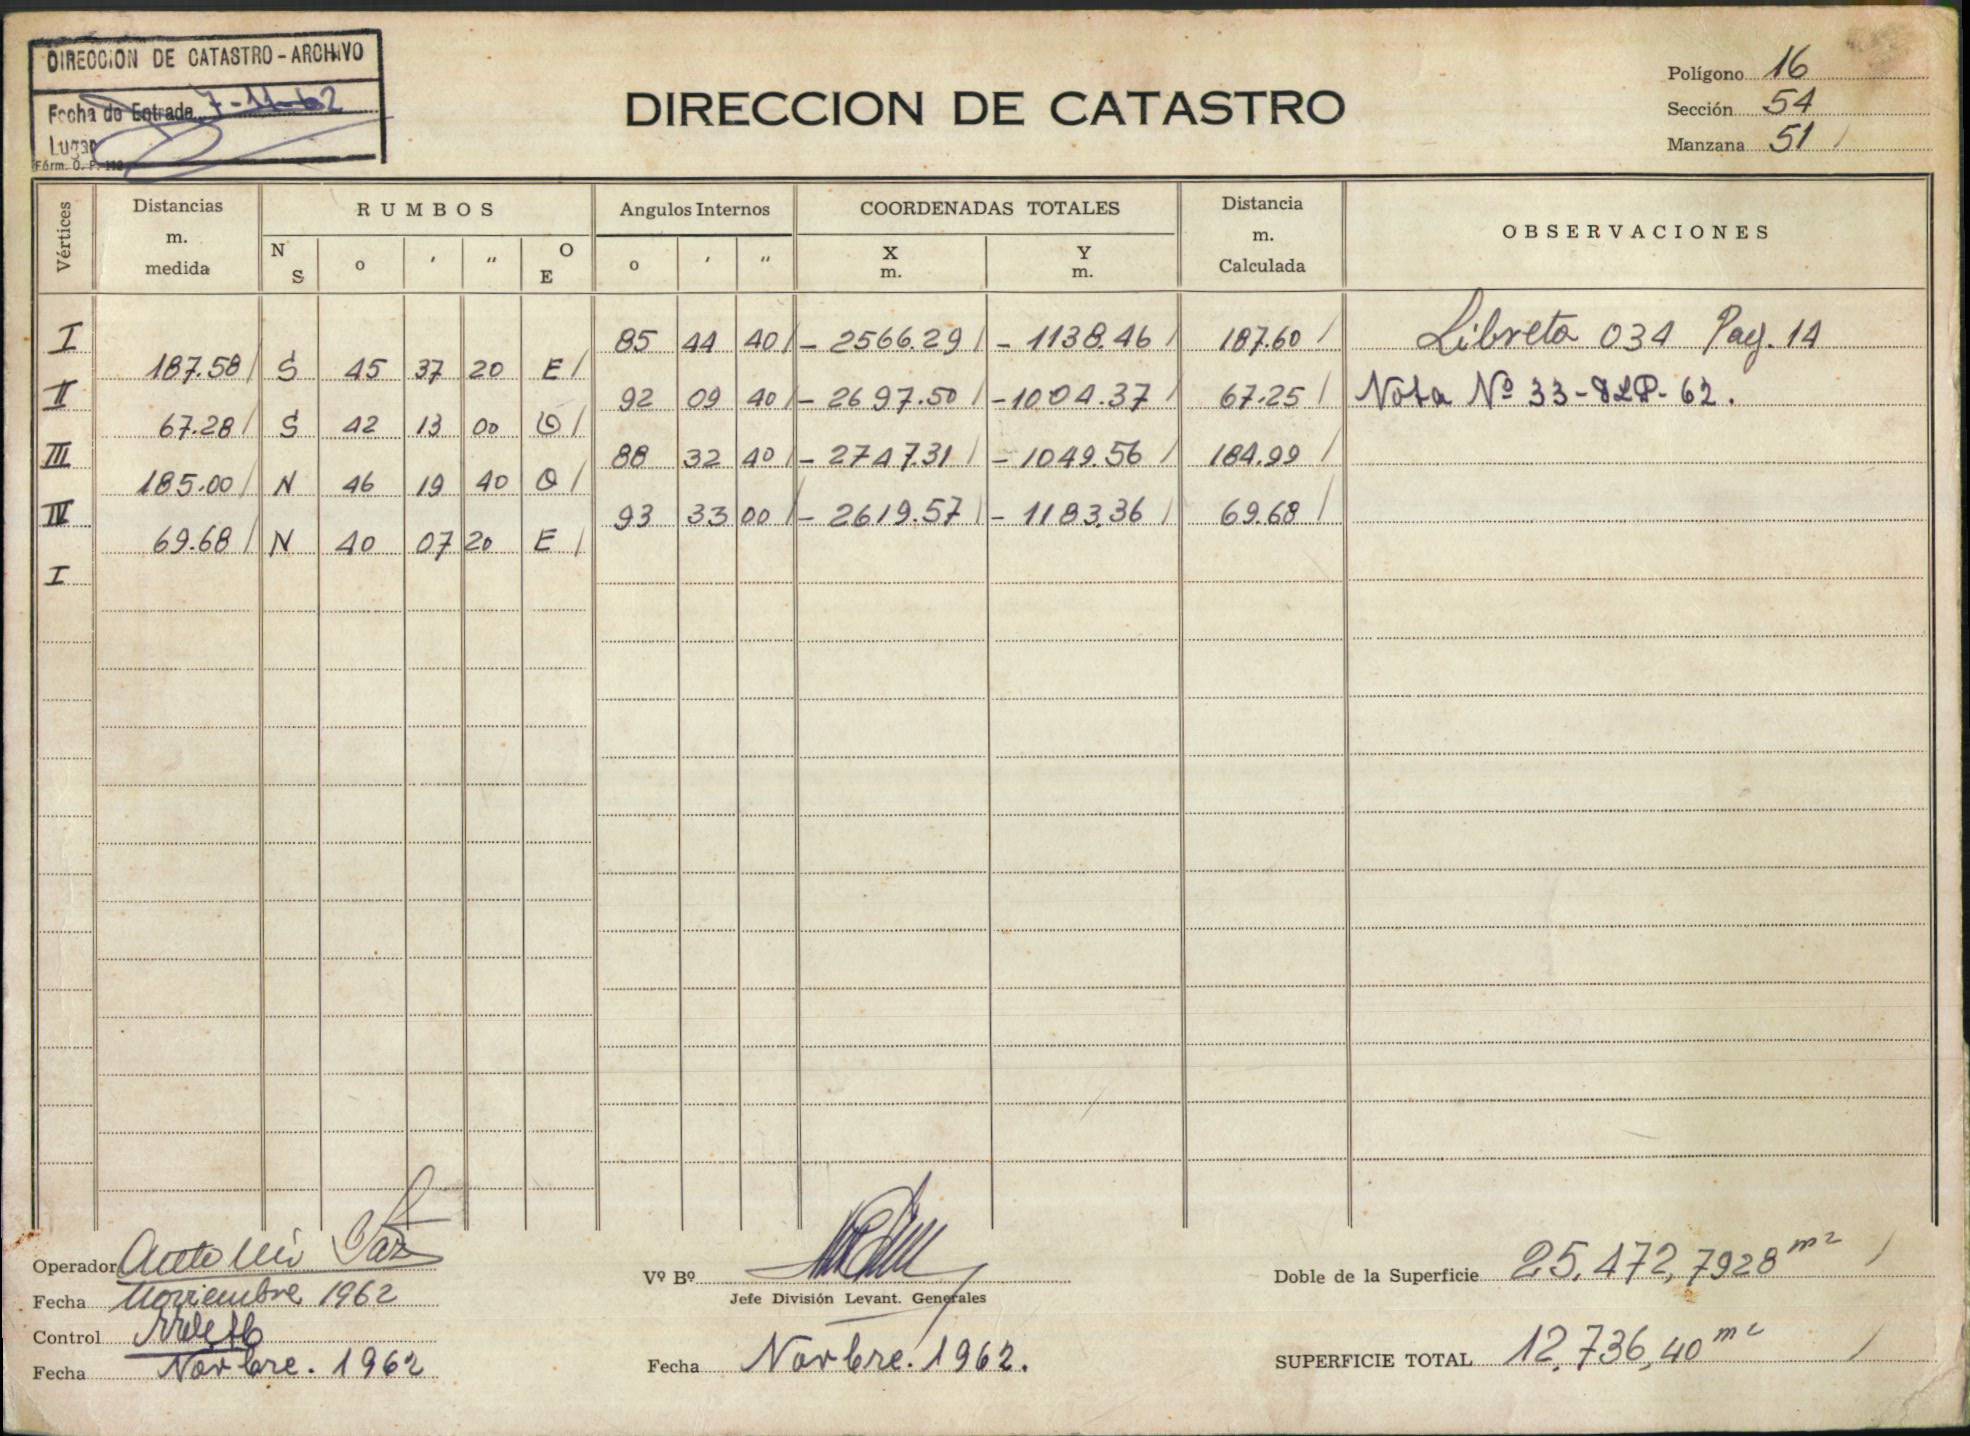 DIRECCION DE CATASTRO - ARCHIVO
Fecha de Entrada 7-11-62
Lugar
Fórm. O. P.
DIRECCION DE CATASTRO
Polígono 16
Sección 54
Manzana 51 /
Vértices Distancias m. medida RUMBOS Angulos Internos COORDENADAS TOTALES Distancia m. Calculada OBSERVACIONES
N S o ' " O E o ' " X m. Y m.
I 85 44 40 / - 2566.29 / - 1138.46 / 187.60 / Libreta 034 Pag. 14
187.58 / S 45 37 20 E /
II 92 09 40 / - 2697.50 / - 1004.37 / 67.25 / Nota Nº 33-DLP-62.
67.28 / S 42 13 00 O /
III 88 32 40 / - 2747.31 / - 1049.56 / 184.99 /
185.00 / N 46 19 40 O /
IV 93 33 00 / - 2619.57 / - 1183.36 / 69.68 /
69.68 / N 40 07 20 E /
I
Operador
Fecha Noviembre 1962
Control
Fecha Novbre. 1962
Vº Bº
Jefe División Levant. Generales
Fecha Novbre. 1962.
Doble de la Superficie 25.472,7928 m² /
SUPERFICIE TOTAL 12.736,40 m² /